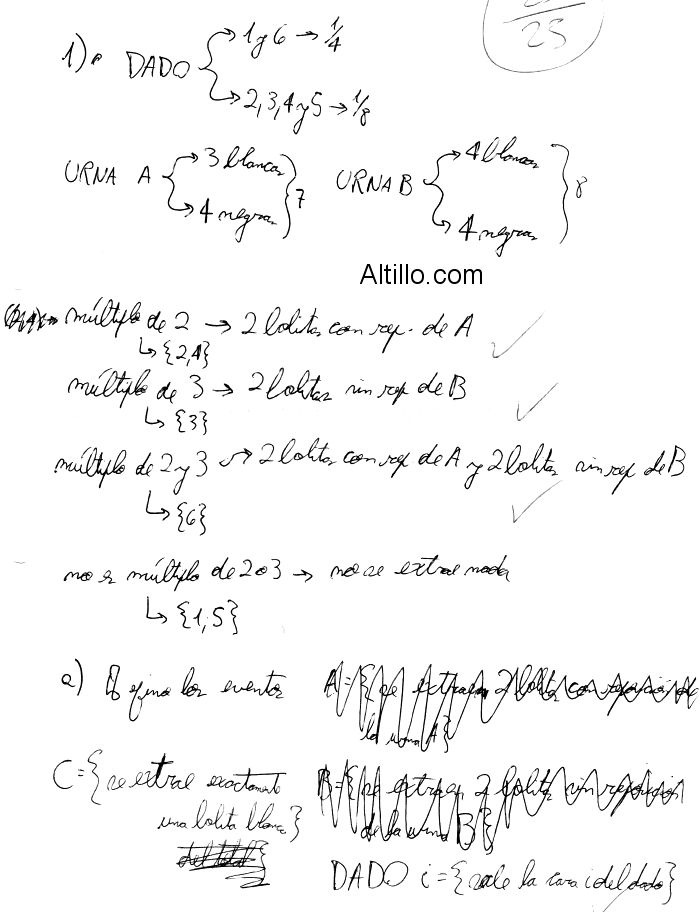 25
1) DADO
1 y 6 → 1/4
2, 3, 4 y 5 → 1/8
URNA A
3 blancas
4 negras
7
URNA B
4 blancas
4 negras
8
Altillo.com
múltiplo de 2 → 2 bolitas con rep. de A
↳ {2,4}
múltiplo de 3 → 2 bolitas sin rep de B
↳ {3}
múltiplo de 2 y 3 → 2 bolitas con rep de A y 2 bolitas sin rep de B
↳ {6}
no es múltiplo de 2 o 3 → no se extrae nada
↳ {1,5}
a) Defino los eventos
A={se extraen 2 bolitas con reposición de
la urna A}
C={se extrae exactamente
una bolita blanca}
del total}
B={se extraen 2 bolitas sin reposición
de la urna B}
DADO i={sale la cara i del dado}